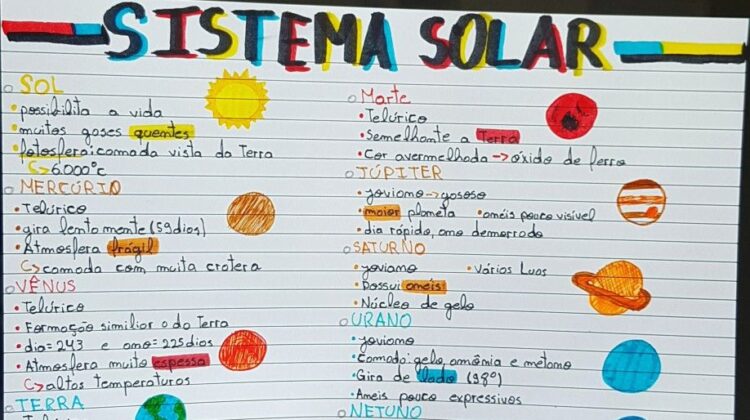 SISTEMA SOLAR
SOL
possibilita a vida
muitos gases quentes
fotosfera: camada vista da Terra
6.000°c
MERCÚRIO
Telúrico
gira lentamente (59 dias)
Atmosfera frágil
camada com muita cratera
VÊNUS
Telúrico
Formação similiar a da Terra
dia = 243 e ano = 225 dias
Atmosfera muito espessa
altas temperaturas
TERRA
Marte
Telúrico
Semelhante a Terra
Cor avermelhada → óxido de ferro
JÚPITER
joviano → gasoso
maior planeta • anéis pouco visível
dia rápido, ano demorado
SATURNO
joviano • Várias Luas
Possui anéis
Núcleo de gelo
URANO
joviano
camada: gelo, amônia e metano
Gira de lado (98°)
Aneis pouco expressivos
NETUNO